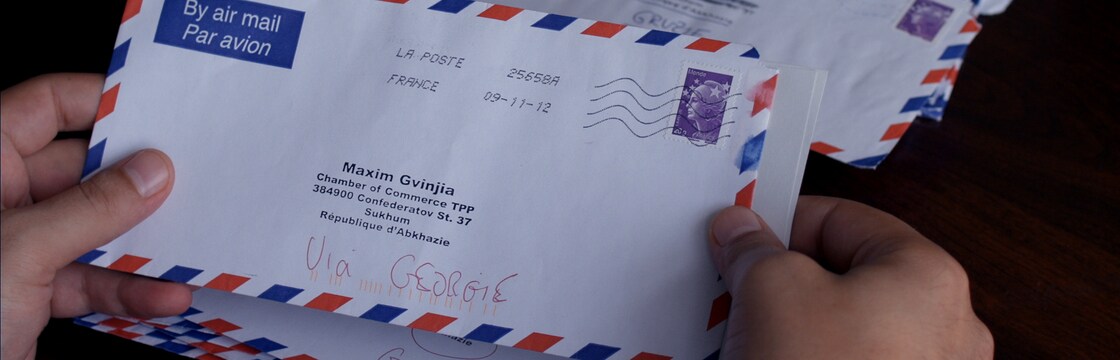 By air mail
Par avion
LA POSTE 25658A
FRANCE 09-11-12
Maxim Gvinjia
Chamber of Commerce TPP
384900 Confederatov St. 37
Sukhum
République d'Abkhazie
Via GEORGIE
GRUZIE